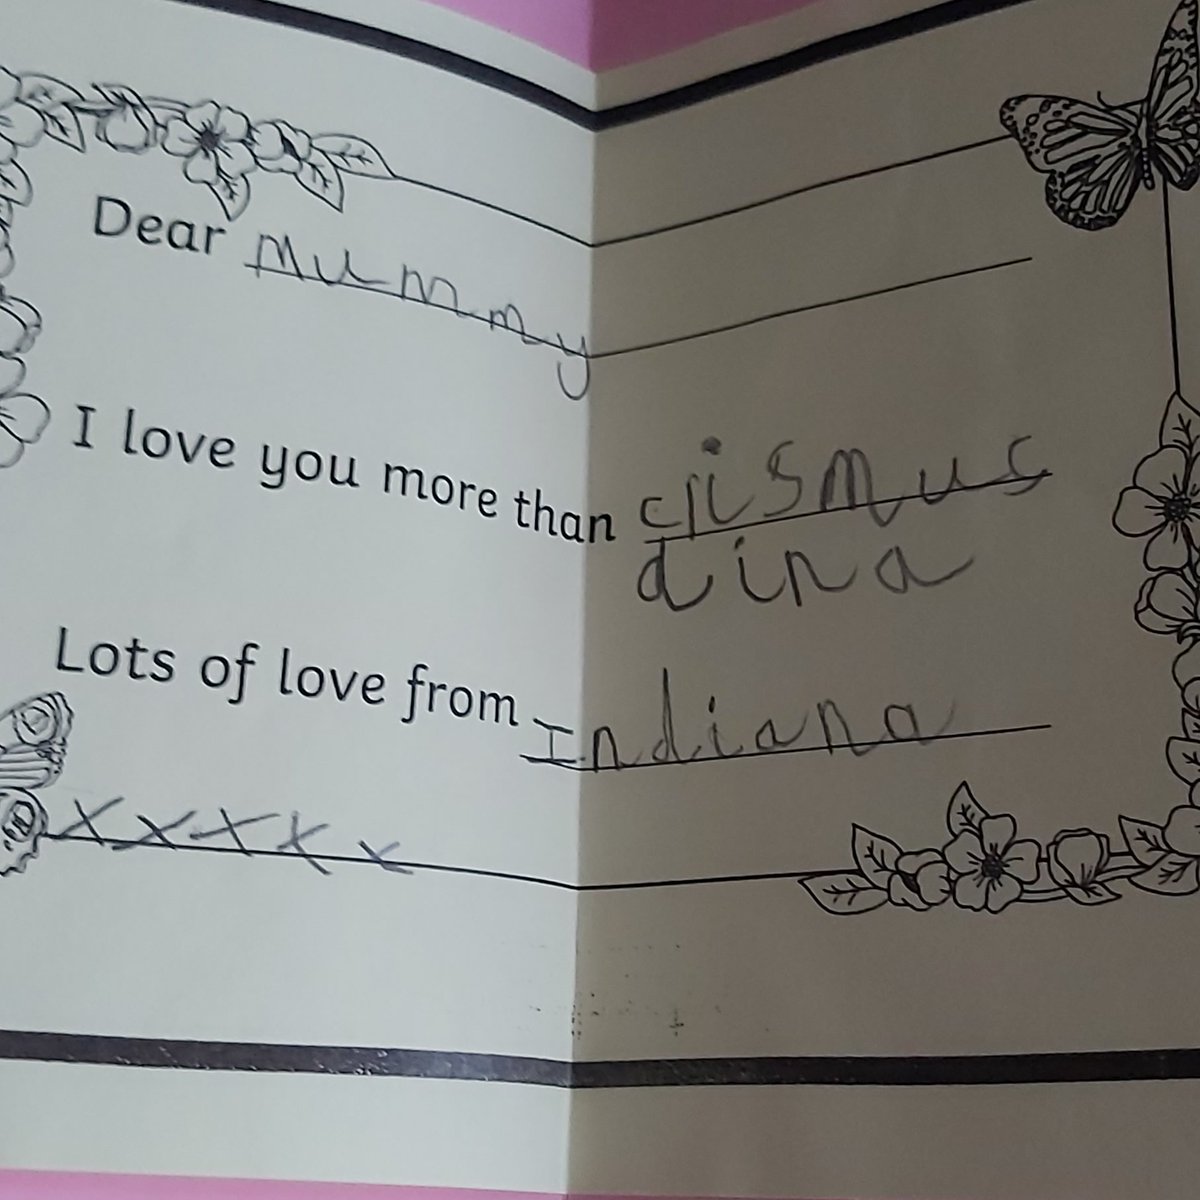 Dear mummy
I love you more than crismus
dina
Lots of love from Indiana
xxxxx